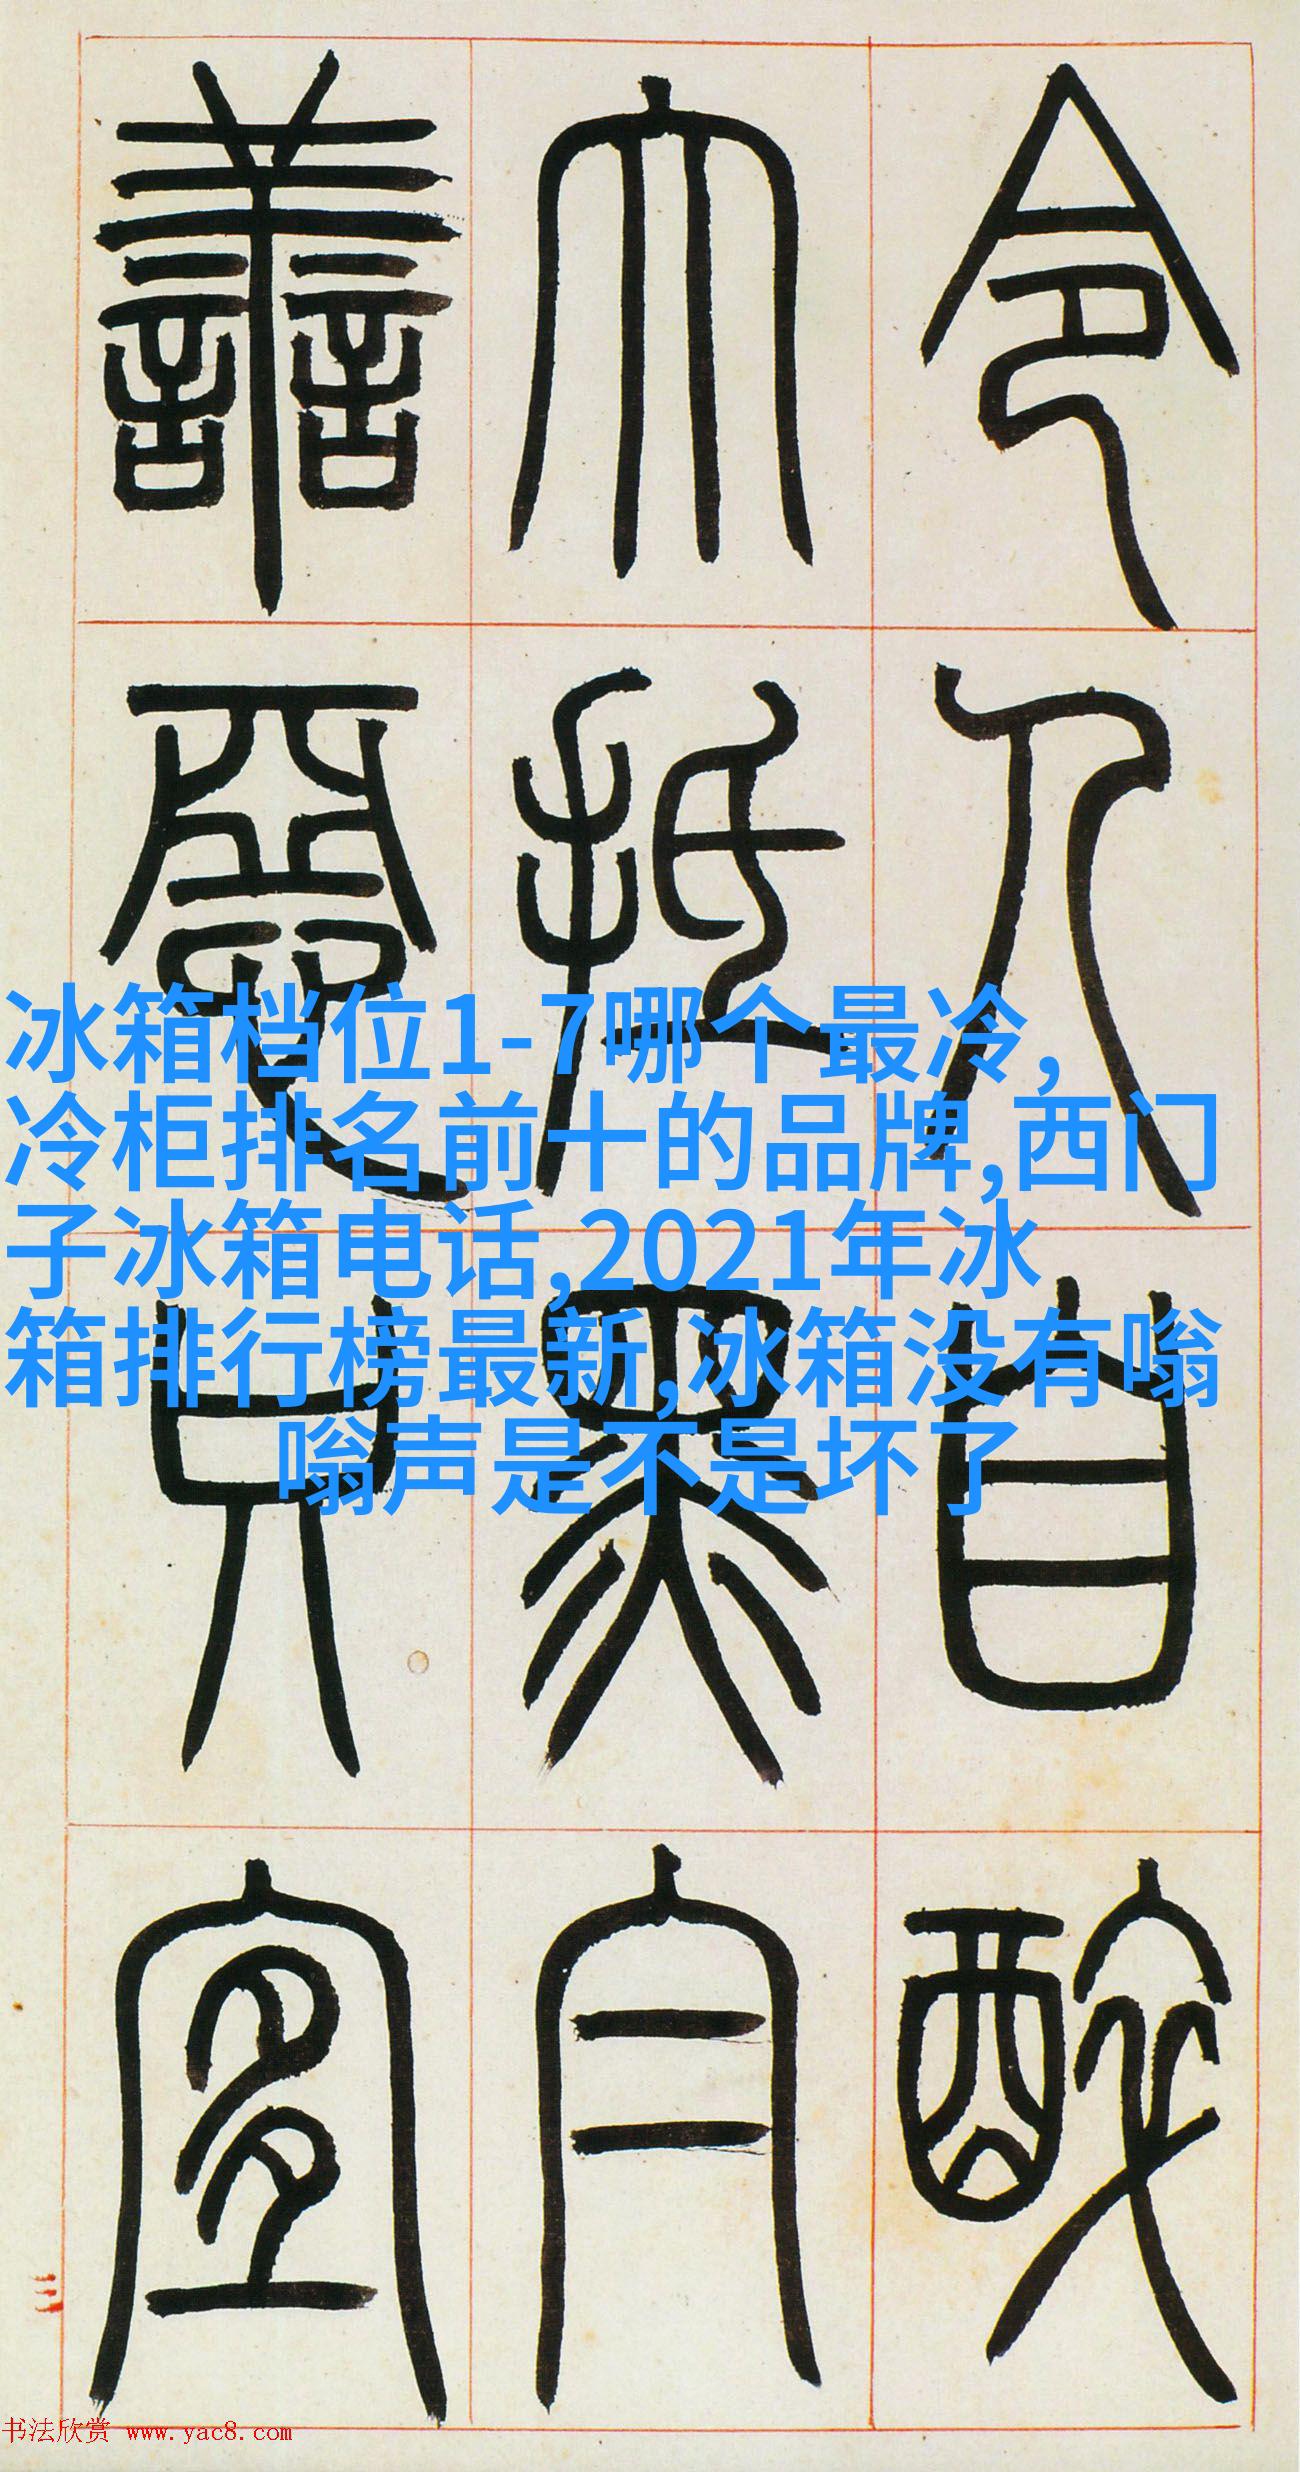 令人自醉
大抵眾
善只宜
冰箱档位1-7哪个最冷,
冷柜排名前十的品牌,西门
子冰箱电话,2021年冰
箱排行榜最新,冰箱没有嗡
嗡声是不是坏了
三
书法欣赏 www.yac8.com